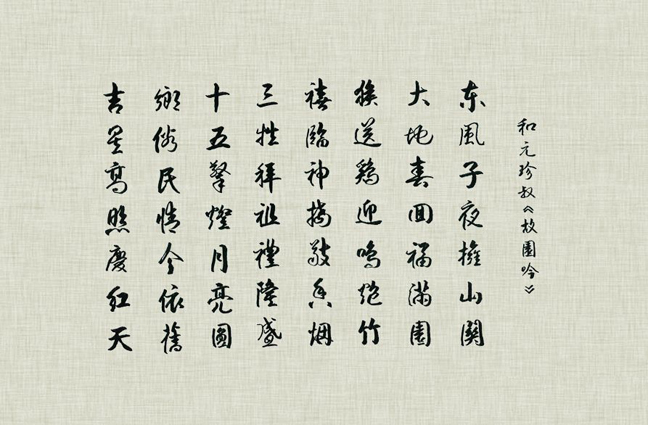 和元珍叔《故園吟》
东風子夜擁山關
大地春回福滿園
猴送鷄迎鳴炮竹
禧臨神敬香烟
三牲拜祖禮隆盛
十五擎燈月亮圓
鄉俗民情今依舊
吉星高照慶红天